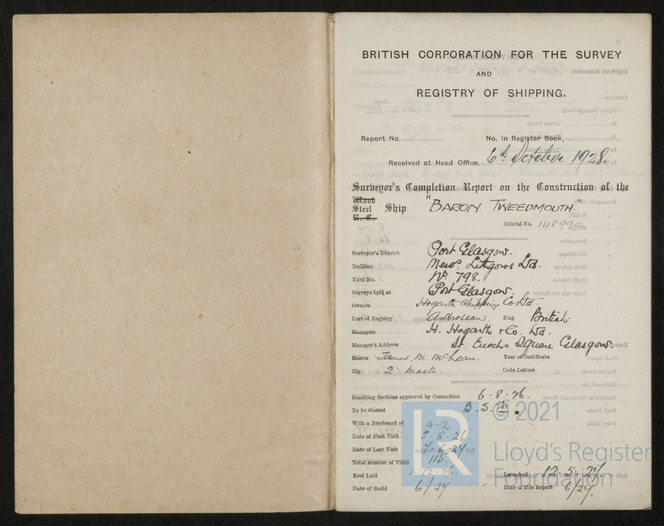 BRITISH CORPORATION FOR THE SURVEY
AND
REGISTRY OF SHIPPING.
Report No. No. in Register Book,
Received at Head Office, 6th October 1928.
Surveyor's Completion Report on the Construction of the
Wood
Steel Ship "BARON TWEEDMOUTH"
Official No.
Surveyor's District Port Glasgow.
Builders Messrs. Lithgows Ltd.
Yard No. No. 798.
Surveys held at Port Glasgow.
Owners Hogarth Shipping Co Ltd
Port of Registry Ardrossan Flag British
Managers H. Hogarth & Co. Ltd.
Manager's Address St. Enoch Square Glasgow.
Master James M. McLean. Year of Certificate
Rig 2 Masts. Code Letters
Scantling Sections approved by Committee 6-8-26.
To be classed B.S.
With a Freeboard of 4-2
Date of First Visit 3.8.26
Date of Last Visit
Total number of Visits 115.
Keel Laid Launched 12.5.27
Date of Build 6/27 Date of this Report 6/27.
LR
© 2021
Lloyd's Register
Foundation